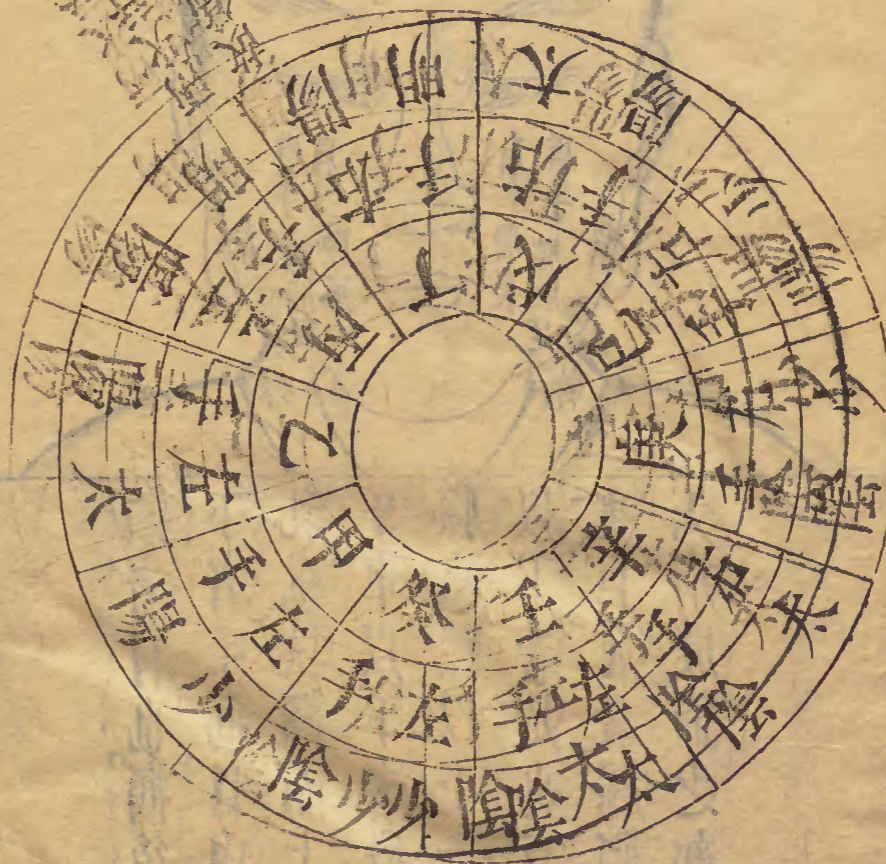 甲
左手
少陽
乙
左手
太陽
丙
左手
陽明
丁
右手
陽明
戊
右手
太陽
己
右手
少陽
庚
右手
少陰
辛
右手
太陰
壬
左手
太陰
癸
左手
少陰